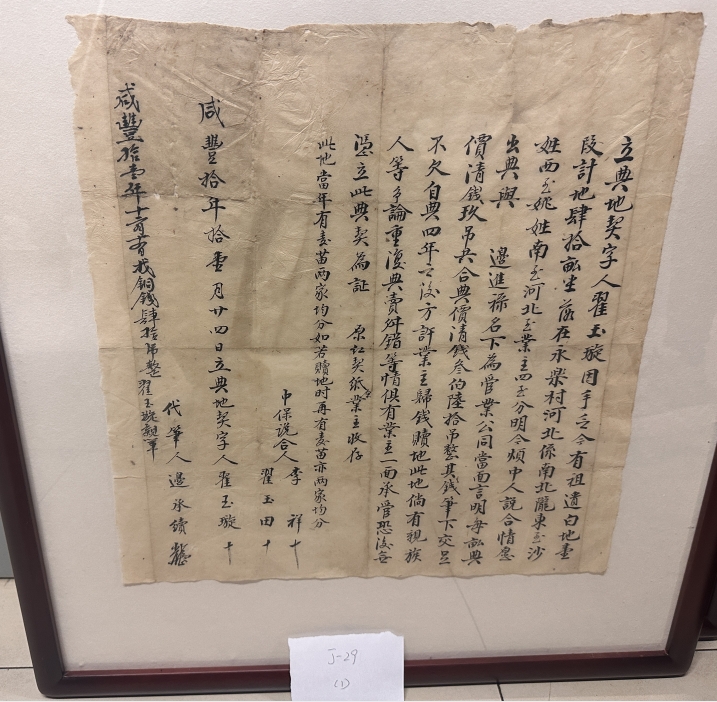 立典地契字人翟玉璇因手乏今有祖遺白地壹
段計地肆拾畝坐落在永樂村河北係南北隴東至沙
姓西至姚姓南至河北至業主四至分明今煩中人說合情愿
出典與 邊進祿名下為管業公同當面言明每畝典
價清錢玖吊共合典價清錢叁伯陸拾吊整其錢筆下交足
不欠自典四年之後方許業主歸錢贖地此地倘有親族
人等爭論重復典賣舛錯等情俱有業主一面承管恐後無
憑立此典契為証 原红契紙業主收存
此地當年有麦苗两家均分如若贖地时再有麦苗亦两家均分
中保說合人 李祥 十
翟玉田 十
咸豐拾年拾壹月廿四日立典地契字人翟玉璇 十
代筆人邊承績
咸豐拾壹年十 找銅錢肆拾吊整 翟玉璇親筆
J-29
(1)